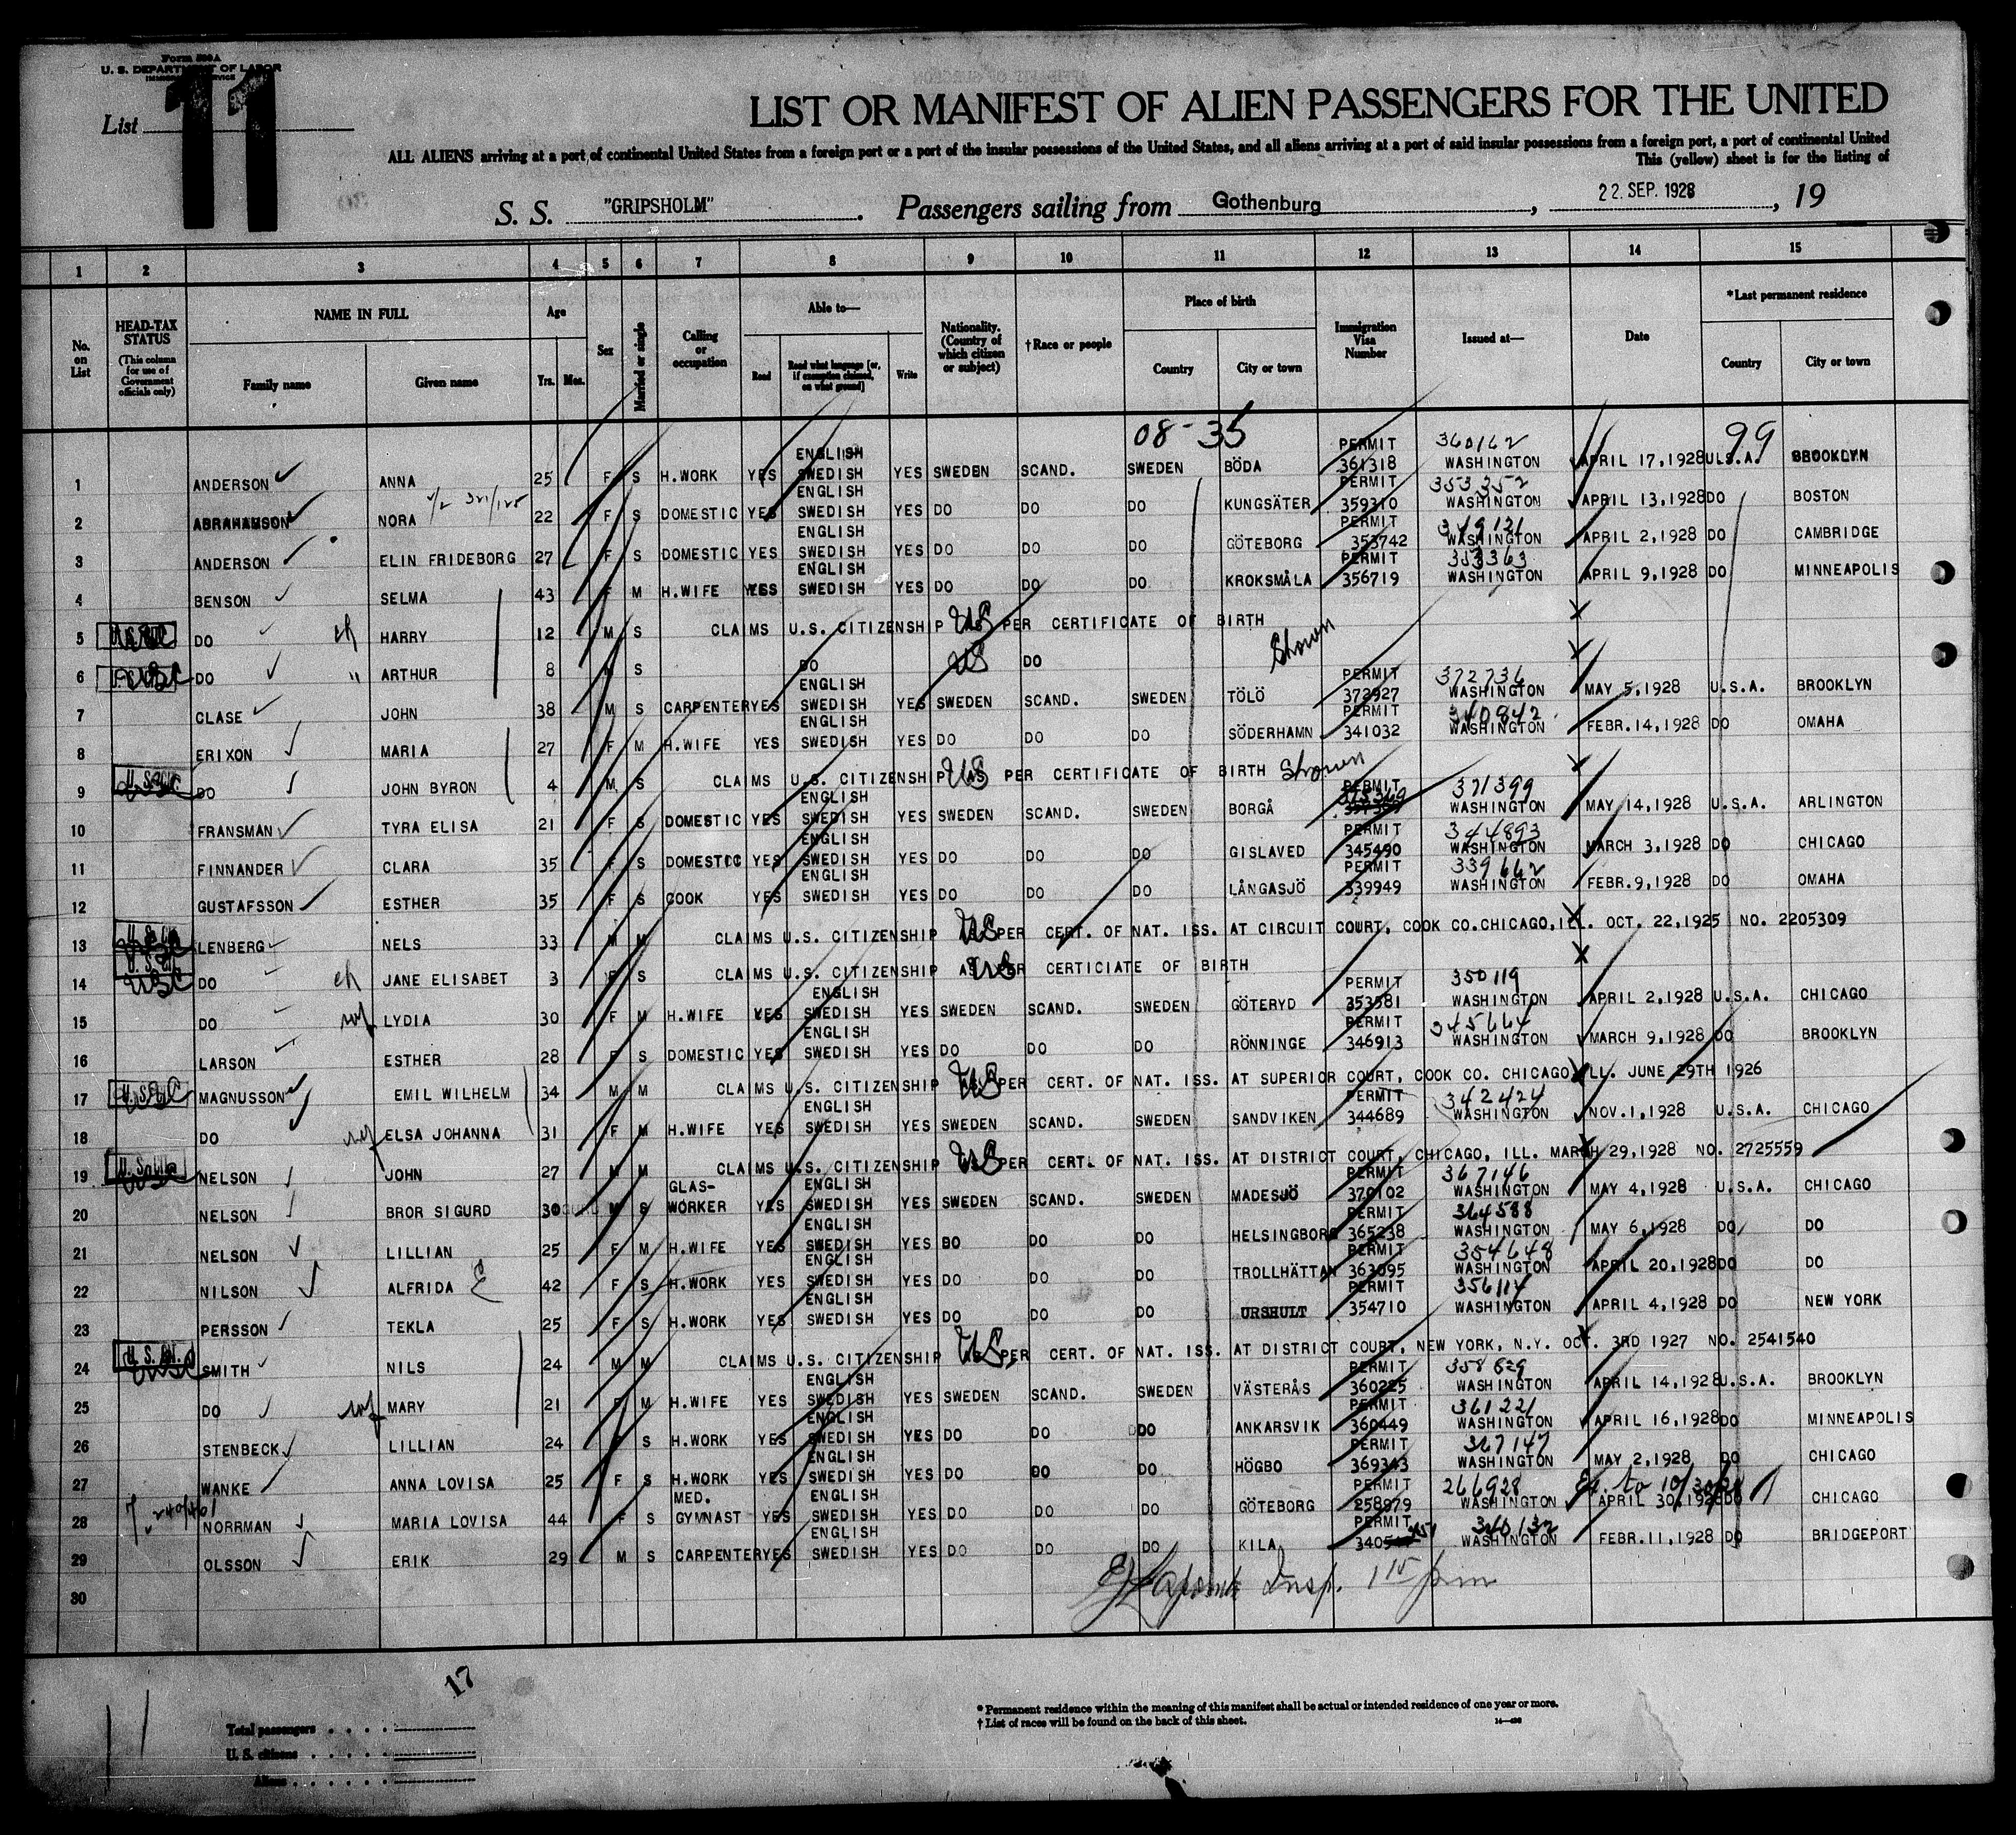 Form 500A
U. S. DEPARTMENT OF LABOR
IMMIGRATION SERVICE
List 11
LIST OR MANIFEST OF ALIEN PASSENGERS FOR THE UNITED
ALL ALIENS arriving at a port of continental United States from a foreign port or a port of the insular possessions of the United States, and all aliens arriving at a port of said insular possessions from a foreign port, a port of continental United
This (yellow) sheet is for the listing of
S. S. "GRIPSHOLM". Passengers sailing from Gothenburg, 22. SEP. 1928, 19
1 2 3 4 5 6 7 8 9 10 11 12 13 14 15
No. on List
HEAD-TAX STATUS (This column for use of Government officials only)
NAME IN FULL
Family name Given name
Age
Yrs. Mos.
Sex
Married or single
Calling or occupation
Able to—
Read Read what language [or, if exemption claimed, on what ground] Write
Nationality. (Country of which citizen or subject)
†Race or people
Place of birth
Country City or town
Immigration Visa Number
Issued at—
Date
*Last permanent residence
Country City or town
08-35 99
1 ANDERSON ANNA 25 F S H.WORK YES ENGLISH SWEDISH YES SWEDEN SCAND. SWEDEN BÖDA PERMIT 361318 360162 WASHINGTON APRIL 17,1928 U.S.A. BROOKLYN
2 ABRAHAMSON NORA 22 F S DOMESTIC YES ENGLISH SWEDISH YES DO DO DO KUNGSÄTER PERMIT 359310 353352 WASHINGTON APRIL 13,1928 DO BOSTON
3 ANDERSON ELIN FRIDEBORG 27 F S DOMESTIC YES ENGLISH SWEDISH YES DO DO DO GÖTEBORG PERMIT 353742 349121 WASHINGTON APRIL 2,1928 DO CAMBRIDGE
4 BENSON SELMA 43 F M H.WIFE YES ENGLISH SWEDISH YES DO DO DO KROKSMÅLA PERMIT 356719 353363 WASHINGTON APRIL 9,1928 DO MINNEAPOLIS
5 USC DO ch HARRY 12 M S CLAIMS U.S. CITIZENSHIP AS US PER CERTIFICATE OF BIRTH
6 USC DO " ARTHUR 8 M S DO US DO Shown
7 CLASE JOHN 38 M S CARPENTER YES ENGLISH SWEDISH YES SWEDEN SCAND. SWEDEN TÖLÖ PERMIT 372927 372736 WASHINGTON MAY 5,1928 U.S.A. BROOKLYN
8 ERIXON MARIA 27 F M H.WIFE YES ENGLISH SWEDISH YES DO DO DO SÖDERHAMN PERMIT 341032 340842 WASHINGTON FEBR.14,1928 DO OMAHA
9 DO JOHN BYRON 4 M S CLAIMS U.S. CITIZENSHIP AS US PER CERTIFICATE OF BIRTH Shown
10 FRANSMAN TYRA ELISA 21 F S DOMESTIC YES ENGLISH SWEDISH YES SWEDEN SCAND. SWEDEN BORGÅ PERMIT 371399 WASHINGTON MAY 14,1928 U.S.A. ARLINGTON
11 FINNANDER CLARA 35 F S DOMESTIC YES ENGLISH SWEDISH YES DO DO DO GISLAVED PERMIT 345490 344893 WASHINGTON MARCH 3,1928 DO CHICAGO
12 GUSTAFSSON ESTHER 35 F S COOK YES ENGLISH SWEDISH YES DO DO DO LÅNGASJÖ PERMIT 339949 339662 WASHINGTON FEBR.9,1928 DO OMAHA
13 LENBERG NELS 33 M M CLAIMS U.S. CITIZENSHIP US PER CERT. OF NAT. ISS. AT CIRCUIT COURT, COOK CO.CHICAGO,ILL. OCT. 22,1925 NO. 2205309
14 USC DO ch JANE ELISABET 3 F S CLAIMS U.S. CITIZENSHIP AS US PER CERTICIATE OF BIRTH
15 DO wf LYDIA 30 F M H.WIFE YES ENGLISH SWEDISH YES SWEDEN SCAND. SWEDEN GÖTERYD PERMIT 353581 350119 WASHINGTON APRIL 2,1928 U.S.A. CHICAGO
16 LARSON ESTHER 28 F S DOMESTIC YES ENGLISH SWEDISH YES DO DO DO RÖNNINGE PERMIT 346913 345664 WASHINGTON MARCH 9,1928 DO BROOKLYN
17 USC MAGNUSSON EMIL WILHELM 34 M M CLAIMS U.S. CITIZENSHIP US PER CERT. OF NAT. ISS. AT SUPERIOR COURT, COOK CO. CHICAGO ILL. JUNE 29TH 1926
18 DO wf ELSA JOHANNA 31 F M H.WIFE YES ENGLISH SWEDISH YES SWEDEN SCAND. SWEDEN SANDVIKEN PERMIT 344689 342424 WASHINGTON NOV.1,1928 U.S.A. CHICAGO
19 NELSON JOHN 27 M M CLAIMS U.S. CITIZENSHIP US PER CERT. OF NAT. ISS. AT DISTRICT COURT, CHICAGO, ILL. MARCH 29,1928 NO. 2725559
20 NELSON BROR SIGURD 30 M S GLAS- WORKER YES ENGLISH SWEDISH YES SWEDEN SCAND. SWEDEN MADESJÖ PERMIT 370102 367146 WASHINGTON MAY 4,1928 U.S.A. CHICAGO
21 NELSON LILLIAN 25 F M H.WIFE YES ENGLISH SWEDISH YES DO DO DO HELSINGBORG PERMIT 365238 364588 WASHINGTON MAY 6,1928 DO DO
22 NILSON ALFRIDA E 42 F S H.WORK YES ENGLISH SWEDISH YES DO DO DO TROLLHÄTTAN PERMIT 363095 354648 WASHINGTON APRIL 20,1928 DO DO
23 PERSSON TEKLA 25 F S H.WORK YES ENGLISH SWEDISH YES DO DO DO URSHULT PERMIT 354710 356114 WASHINGTON APRIL 4,1928 DO NEW YORK
24 SMITH NILS 24 M M CLAIMS U.S. CITIZENSHIP US PER CERT. OF NAT. ISS. AT DISTRICT COURT, NEW YORK, N.Y. OCT. 3RD 1927 NO. 2541540
25 DO wf MARY 21 F M H.WIFE YES ENGLISH SWEDISH YES SWEDEN SCAND. SWEDEN VÄSTERÅS PERMIT 360225 358629 WASHINGTON APRIL 14,1928 U.S.A. BROOKLYN
26 STENBECK LILLIAN 24 F S H.WORK YES ENGLISH SWEDISH YES DO DO DO ANKARSVIK PERMIT 360449 361221 WASHINGTON APRIL 16,1928 DO MINNEAPOLIS
27 WANKE ANNA LOVISA 25 F S H.WORK YES ENGLISH SWEDISH YES DO DO DO HÖGBO PERMIT 369343 367147 WASHINGTON MAY 2,1928 DO CHICAGO
28 NORRMAN MARIA LOVISA 44 F S MED. GYMNAST YES ENGLISH SWEDISH YES DO DO DO GÖTEBORG PERMIT 258979 266928 WASHINGTON Ex. to 10/30/28 APRIL 30,1928 DO CHICAGO
29 OLSSON ERIK 29 M S CARPENTER YES ENGLISH SWEDISH YES DO DO DO KILA PERMIT 340132 WASHINGTON FEBR.11,1928 DO BRIDGEPORT
30
Insp. 1 15 pm
17
Total passengers
U. S. citizens
Aliens
* Permanent residence within the meaning of this manifest shall be actual or intended residence of one year or more.
† List of races will be found on the back of this sheet.